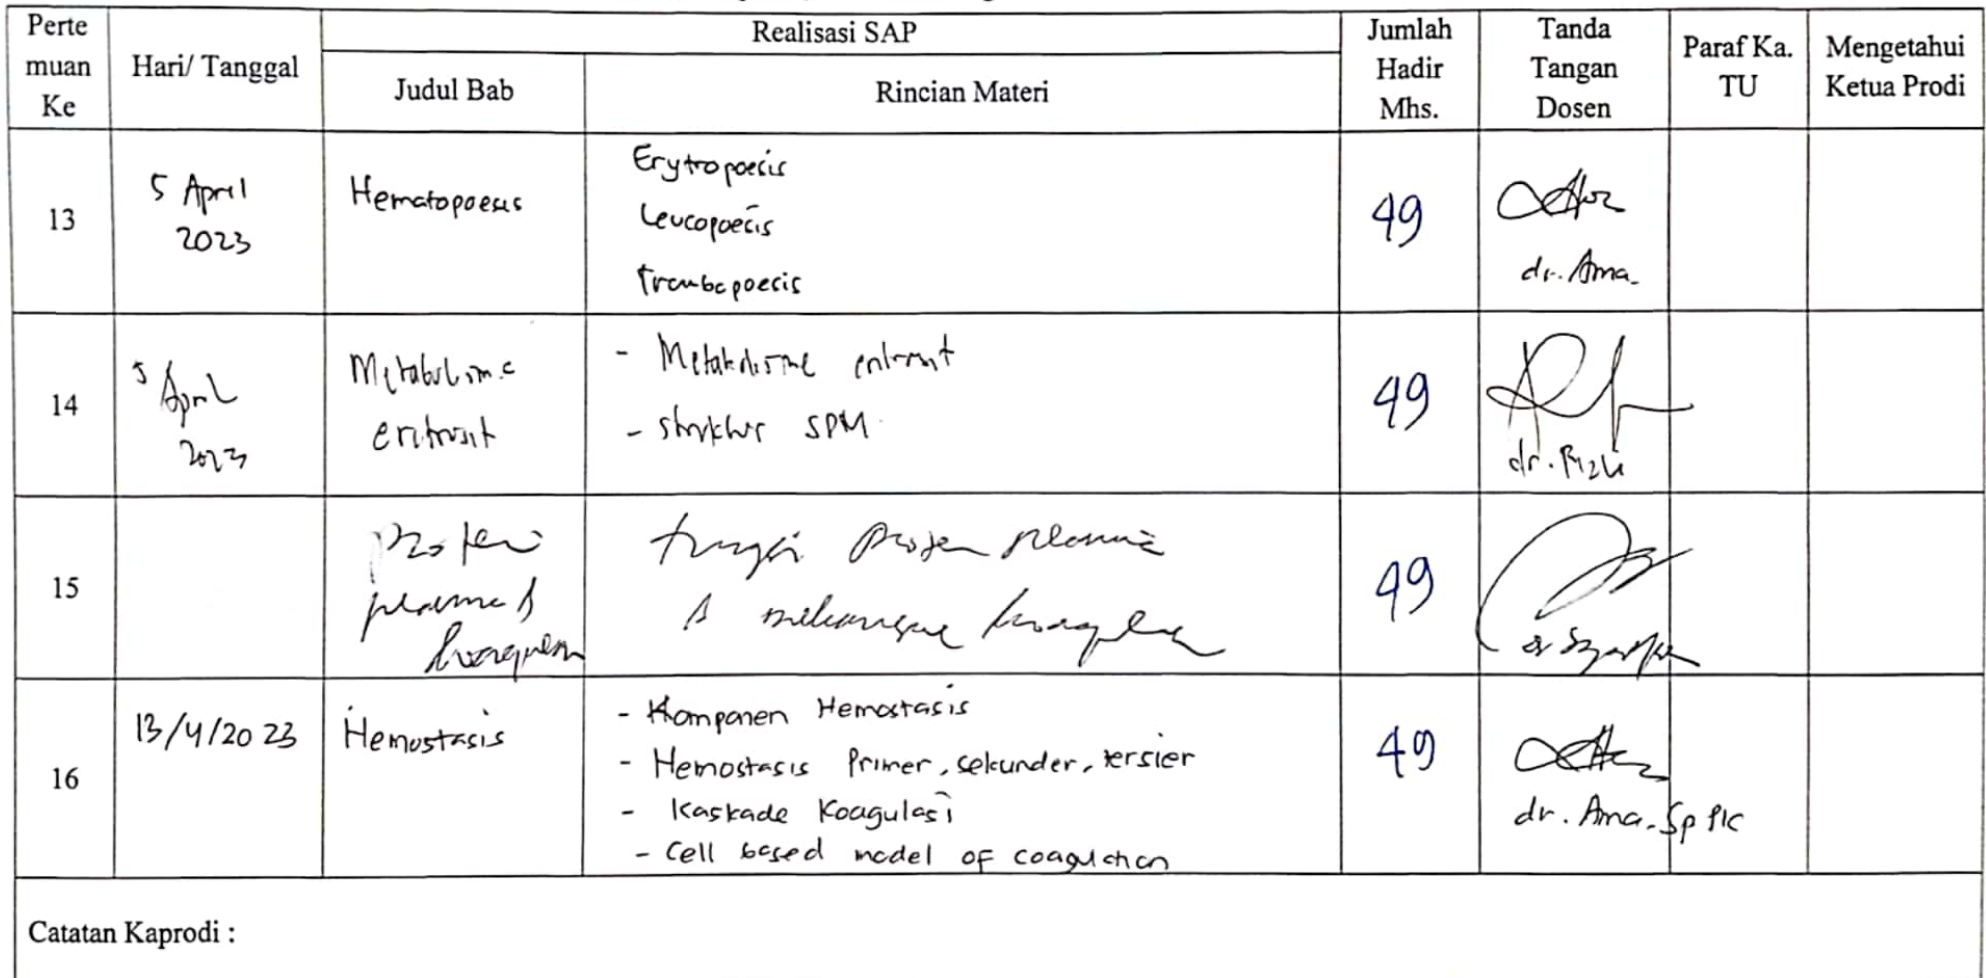 Perte
muan
Ke
Hari/ Tanggal
Realisasi SAP
Judul Bab
Rincian Materi
Jumlah
Hadir
Mhs.
Tanda
Tangan
Dosen
Paraf Ka.
TU
Mengetahui
Ketua Prodi
13
5 April
2023
Hematopoesis
Erytropoecis
Leucopoecis
Trombopoecis
49
dr. Ama.
14
5 April
2023
Metabolisme
eritrosit
- Metabolisme eritrosit
- struktur SPM
49
dr. Rizki
15
Protein
plasma &
koagulasi
fungsi protein plasma
& mekanisme koagulasi
49
16
13/4/2023
Hemostasis
- Komponen Hemostasis
- Hemostasis Primer, sekunder, tersier
- Kaskade Koagulasi
- Cell based model of coagulation
49
dr. Ama. Sp PK
Catatan Kaprodi :